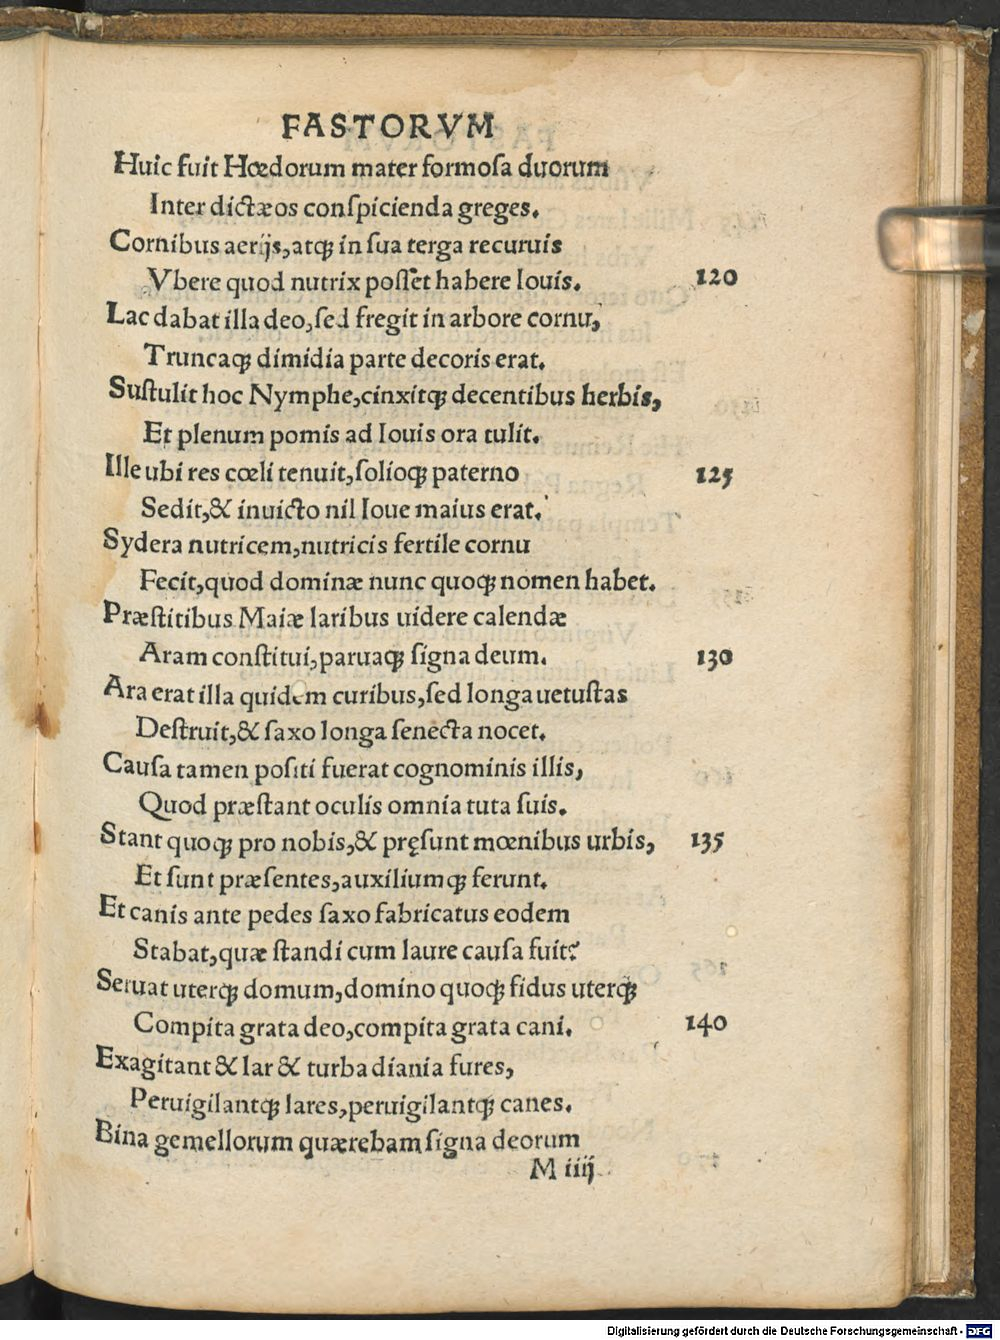 FASTORVM
Huic fuit Hœdorum mater formoſa duorum
Inter dictæos conſpicienda greges.
Cornibus aerijs, atqꝫ in ſua terga recuruis
Vbere quod nutrix poſſet habere Iouis. 120
Lac dabat illa deo, ſed fregit in arbore cornu,
Truncaqꝫ dimidia parte decoris erat.
Suſtulit hoc Nymphe, cinxitqꝫ decentibus herbis,
Et plenum pomis ad Iouis ora tulit.
Ille ubi res cœli tenuit, ſolioqꝫ paterno 125
Sedit, & inuicto nil Ioue maius erat.
Sydera nutricem, nutricis fertile cornu
Fecit, quod dominæ nunc quoqꝫ nomen habet.
Præſtitibus Maiæ laribus uidere calendæ
Aram conſtitui, paruaqꝫ ſigna deum. 130
Ara erat illa quidem curibus, ſed longa uetuſtas
Deſtruit, & ſaxo longa ſenecta nocet.
Cauſa tamen poſiti fuerat cognominis illis,
Quod præſtant oculis omnia tuta ſuis.
Stant quoqꝫ pro nobis, & pręſunt mœnibus urbis, 135
Et ſunt præſentes, auxiliumqꝫ ferunt.
Et canis ante pedes ſaxo fabricatus eodem
Stabat, quæ ſtandi cum laure cauſa fuit?
Seruat uterqꝫ domum, domino quoqꝫ fidus uterqꝫ
Compita grata deo, compita grata cani. 140
Exagitant & lar & turba diania fures,
Peruigilantqꝫ lares, peruigilantqꝫ canes.
Bina gemellorum quærebam ſigna deorum
M iiij
Digitalisierung gefördert durch die Deutsche Forschungsgemeinschaft - DFG